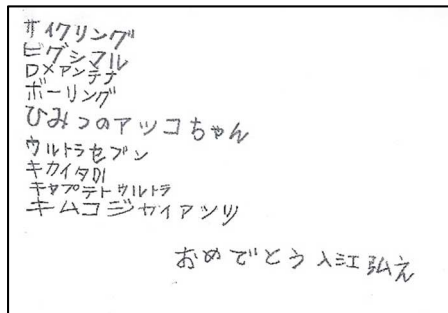 サイクリング
ヒグシマル
DXアンテナ
ボーリング
ひみつのアッコちゃん
ウルトラセブン
キカイダ01
キャプテトウルトラ
キムコジャイアンツ
おめでとう 入江弘え